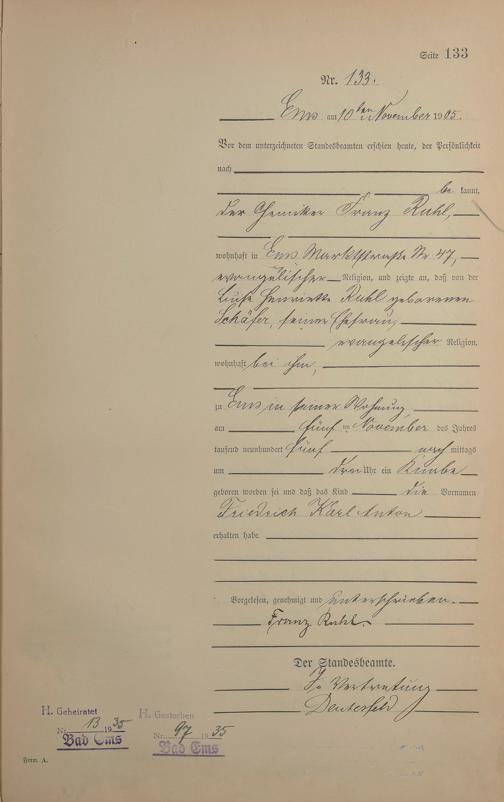 Seite 133
Nr. 133.
Ems am 10ten November 1905.
Vor dem unterzeichneten Standesbeamten erschien heute, der Persönlichkeit
nach
be kannt,
der Chemiker Franz Ruhl,
wohnhaft in Ems Marktstraße Nr. 47,
evangelischer Religion, und zeigte an, daß von der
Luise Henriette Ruhl geborenen
Schäfer, seiner Ehefrau,
evangelischer Religion,
wohnhaft bei ihm,
zu Ems in seiner Wohnung
am fünften November des Jahres
tausend neunhundert fünf nach mittags
um drei Uhr ein Knabe
geboren worden sei und daß das Kind die Vornamen
Friedrich Karl Anton
erhalten habe.
Vorgelesen, genehmigt und unterschrieben.
Franz Ruhl.
Der Standesbeamte.
In Vertretung
H. Geheiratet H. Gestorben
Nr. 13 1935 Nr. 97 1935
Bad Ems Bad Ems
Form. A.